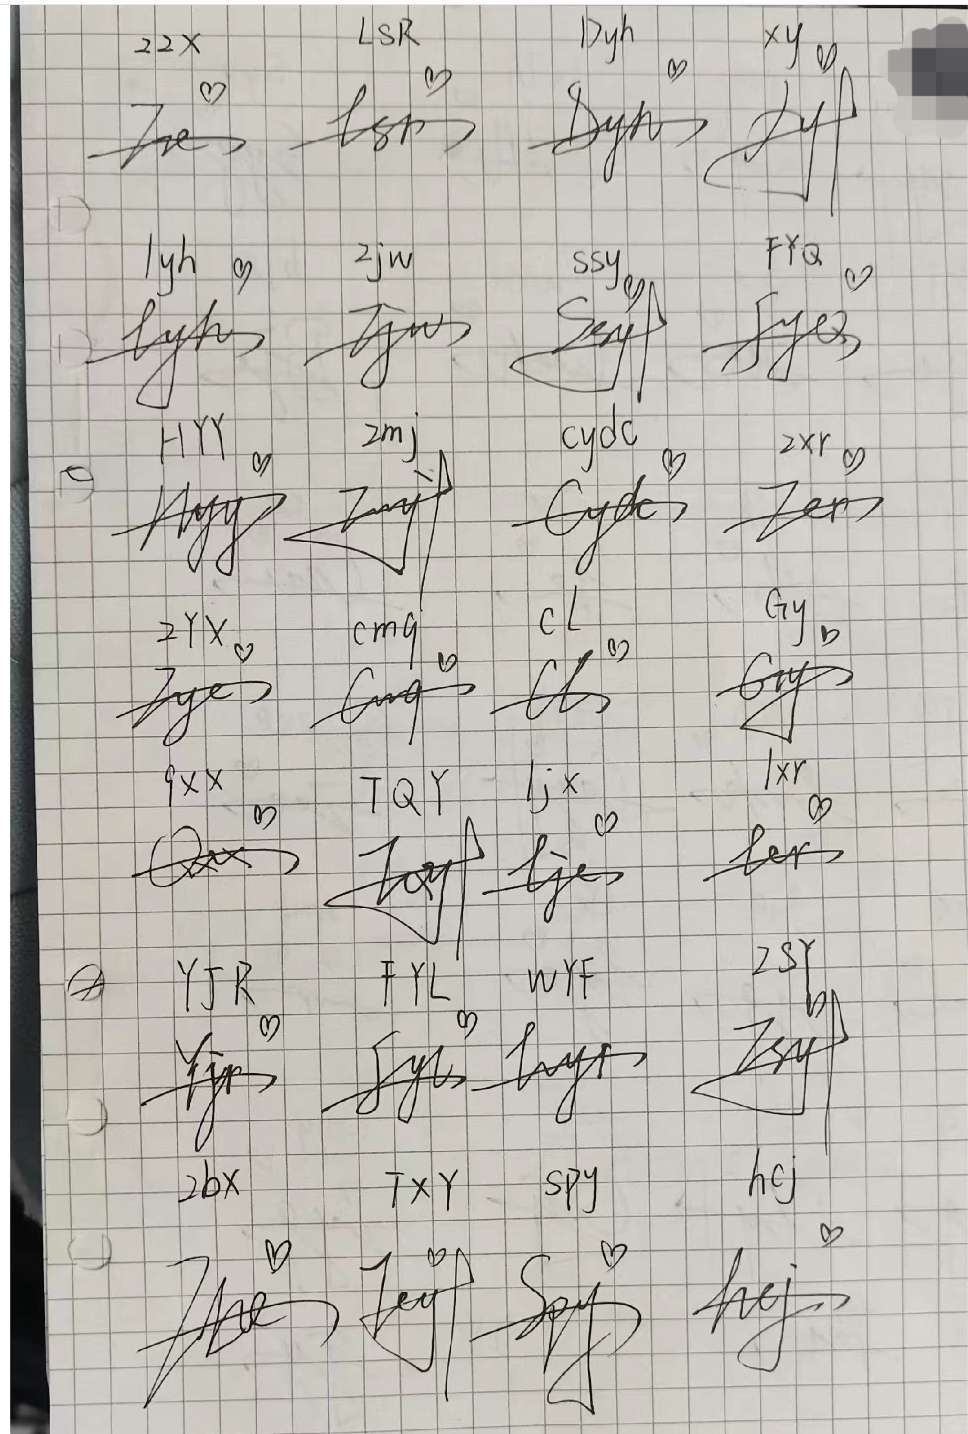 zzx LSR Dyh xy
Zxe lsr Dyh Xy
lyh zjw ssy FYQ
lyh Zjw Ssy Fyq
HYY zmj cydc zxr
Hyy Zmj Cydc Zer
zYX cmq cL Gy
Zye Cmq Cl Gy
qxx TQY ljx lxr
Qxx Tqy lje ler
YJR FYL WYF zSY
Yjr Fyl wyf Zsy
zbx TXY spy hcj
Zbe Tey Spy hcj